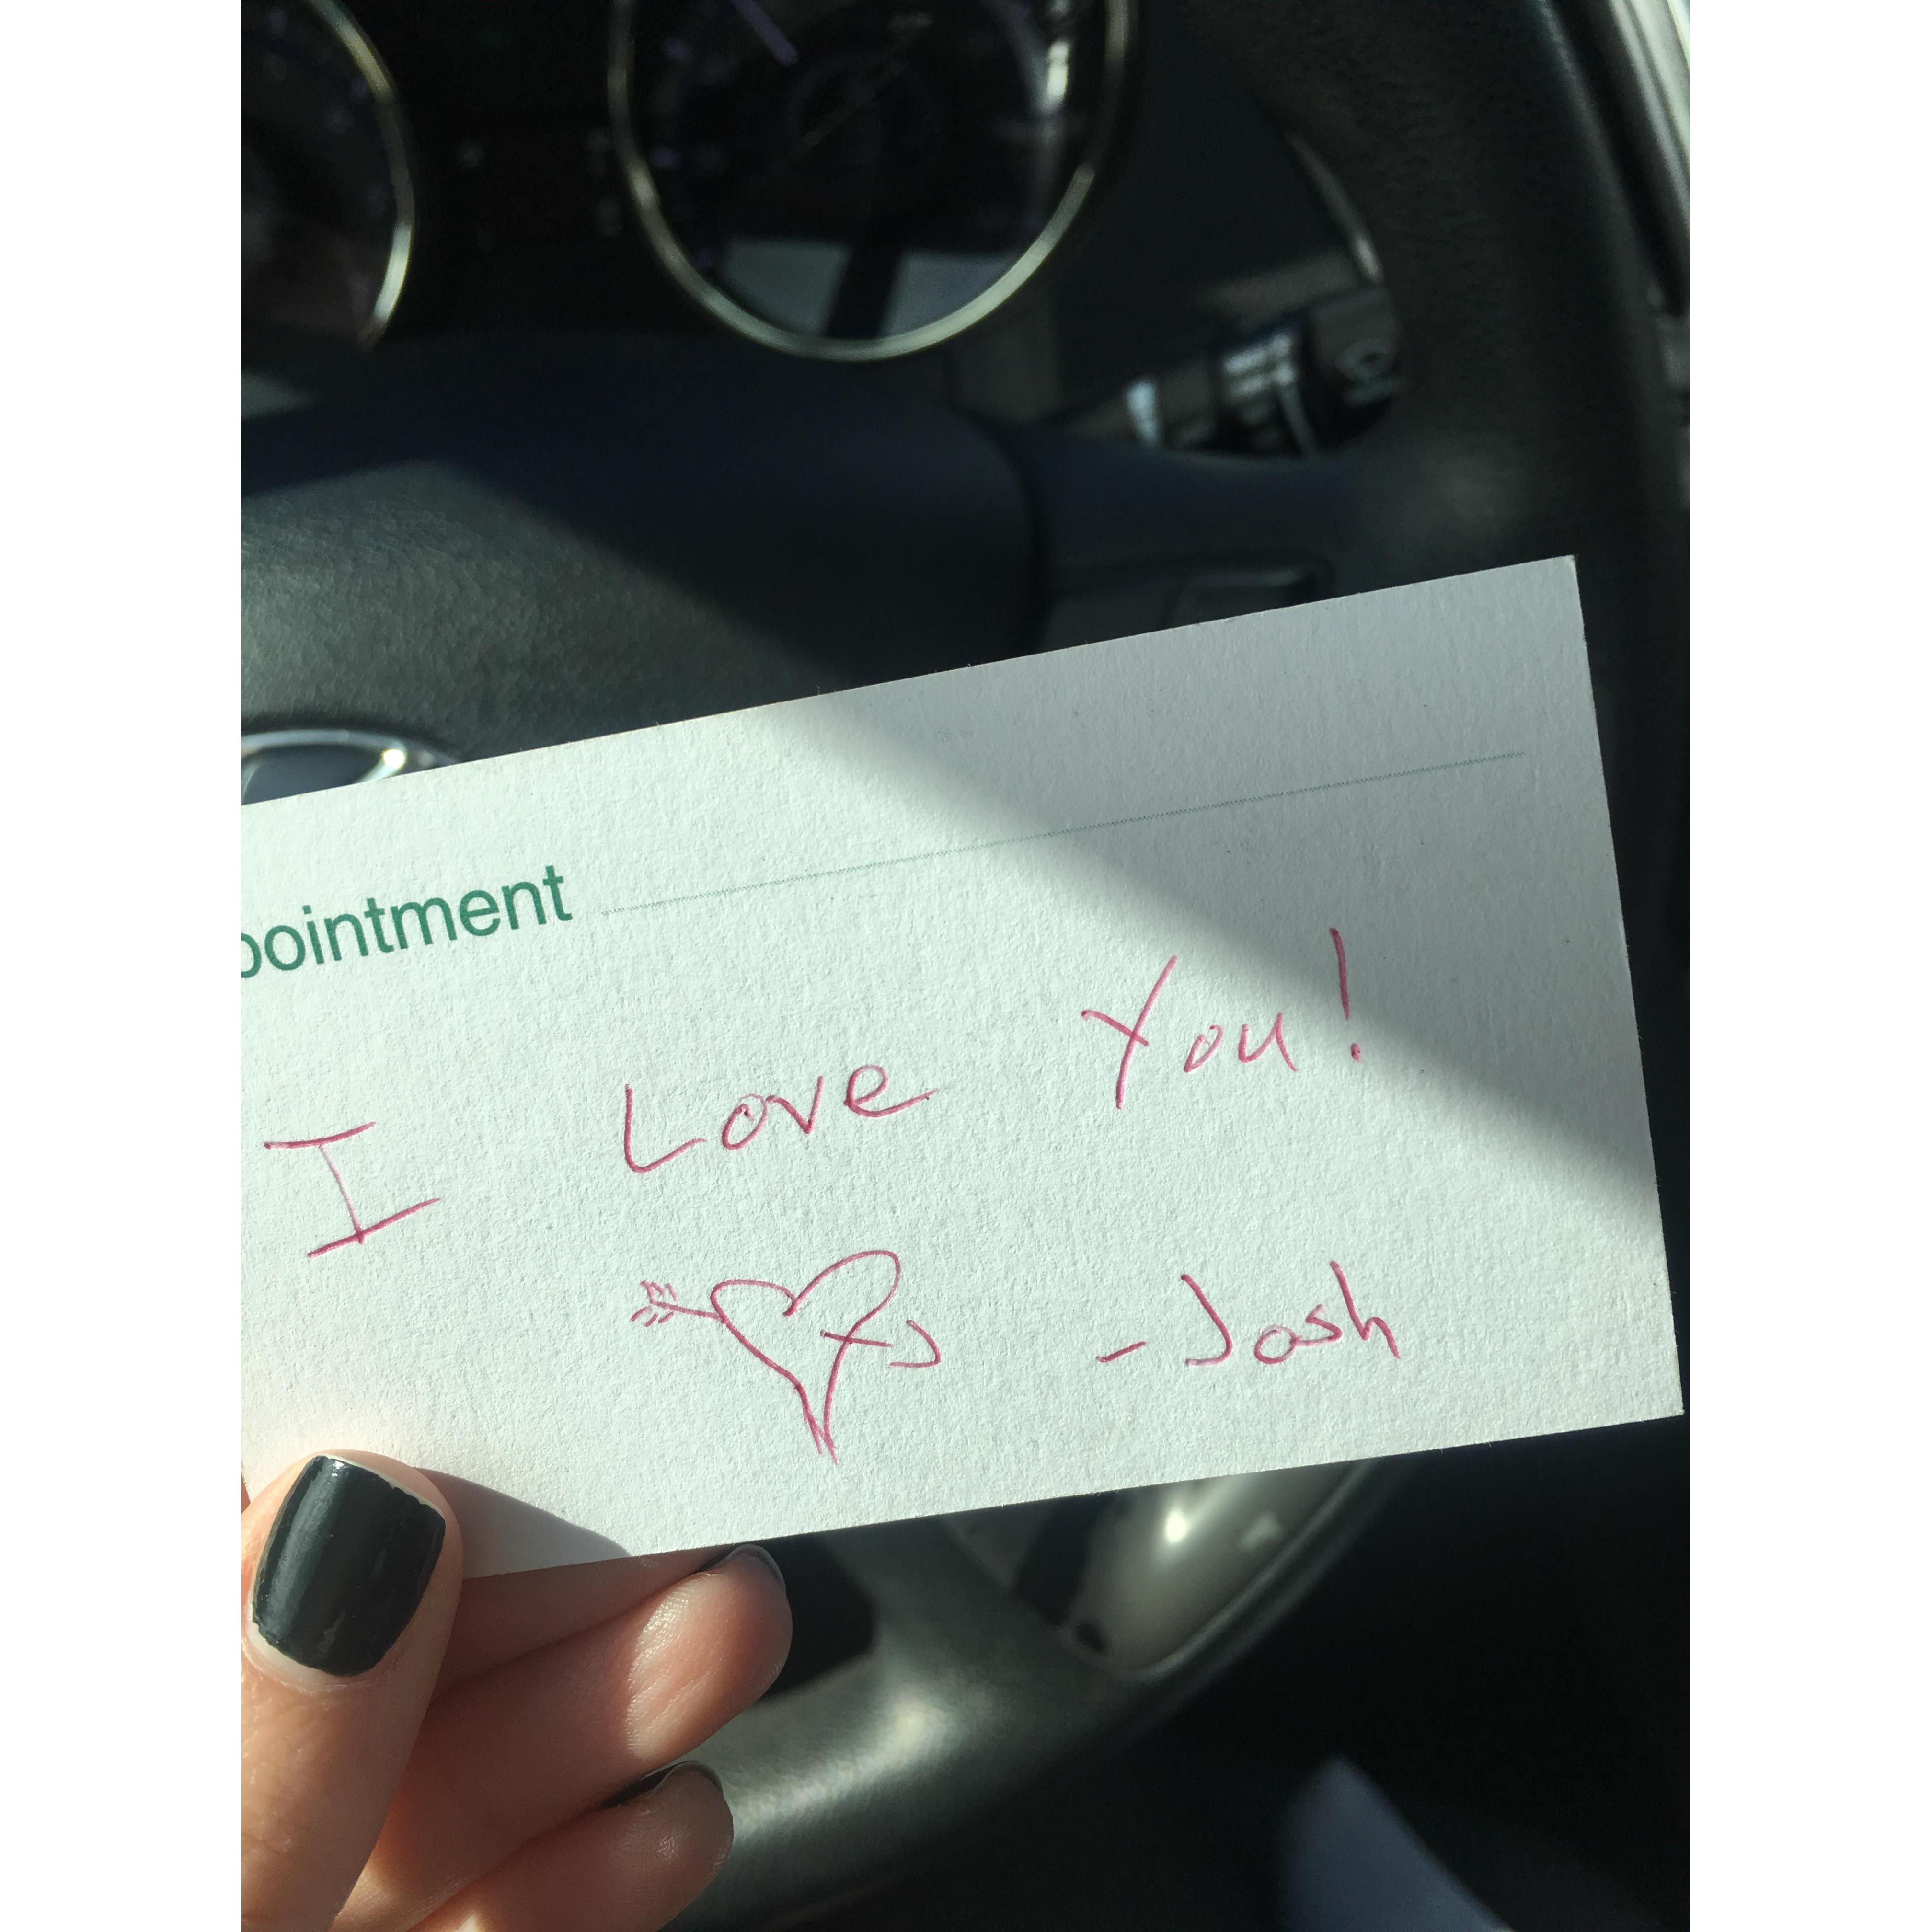 pointment
I Love You!
-Josh